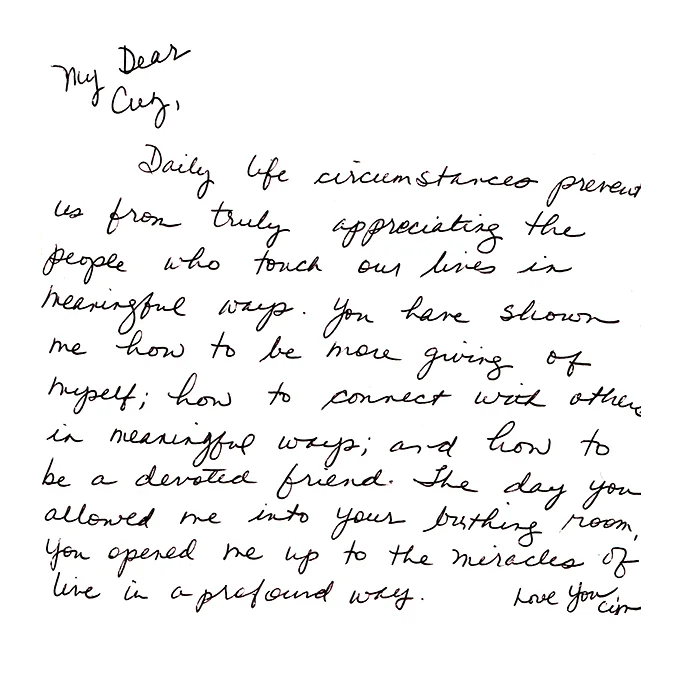 My Dear
Cuz,
Daily life circumstances prevent
us from truly appreciating the
people who touch our lives in
meaningful ways. You have shown
me how to be more giving of
myself; how to connect with others
in meaningful ways; and how to
be a devoted friend. The day you
allowed me into your birthing room,
you opened me up to the miracles of
live in a profound way.
Love You